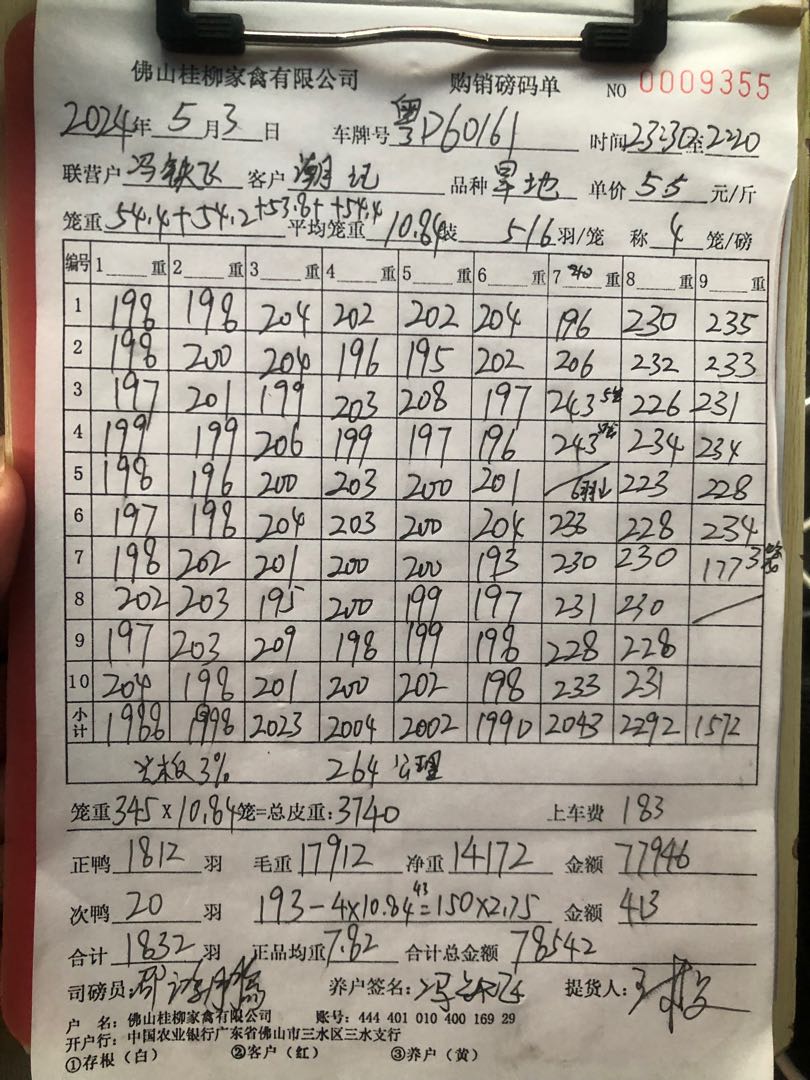 佛山桂柳家禽有限公司 购销磅码单 NO 0009355
2024年 5 月 3 日 车牌号 粤P60161 时间 23:30至2:20
联营户 冯铁飞 客户 潮记 品种 旱地 单价 5.5 元/斤
笼重 54.4+54.2+53.8++54.4 平均笼重 10.84 装 5/6 羽/笼 称 4 笼/磅
编号 1 重 2 重 3 重 4 重 5 重 6 重 7 重 8 重 9 重
1 198 198 204 202 202 204 196 230 235
2 198 200 204 196 195 202 206 232 233
3 197 201 199 203 208 197 243 226 231
4 199 199 206 199 197 196 243 234 234
5 198 196 200 203 200 201 6羽 223 228
6 197 198 204 203 200 204 233 228 234
7 198 202 201 200 200 193 230 230 177
8 202 203 195 200 199 197 231 230
9 197 203 209 198 199 198 228 228
10 204 198 201 200 202 198 233 231
小计 1988 1998 2023 2004 2002 1990 2043 2292 1572
3% 264
笼重 345 X 10.84 笼=总皮重: 3740 上车费 183
正鸭 1812 羽 毛重 17912 净重 14172 金额 77946
次鸭 20 羽 193-4X10.84 43 =150X2.75 金额 413
合计 1832 羽 正品均重 7.82 合计总金额 78542
司磅员: 养户签名: 提货人:
户 名: 佛山桂柳家禽有限公司 账号: 444 401 010 400 169 29
开户行: 中国农业银行广东省佛山市三水区三水支行
①存根（白） ②客户（红） ③养户（黄）